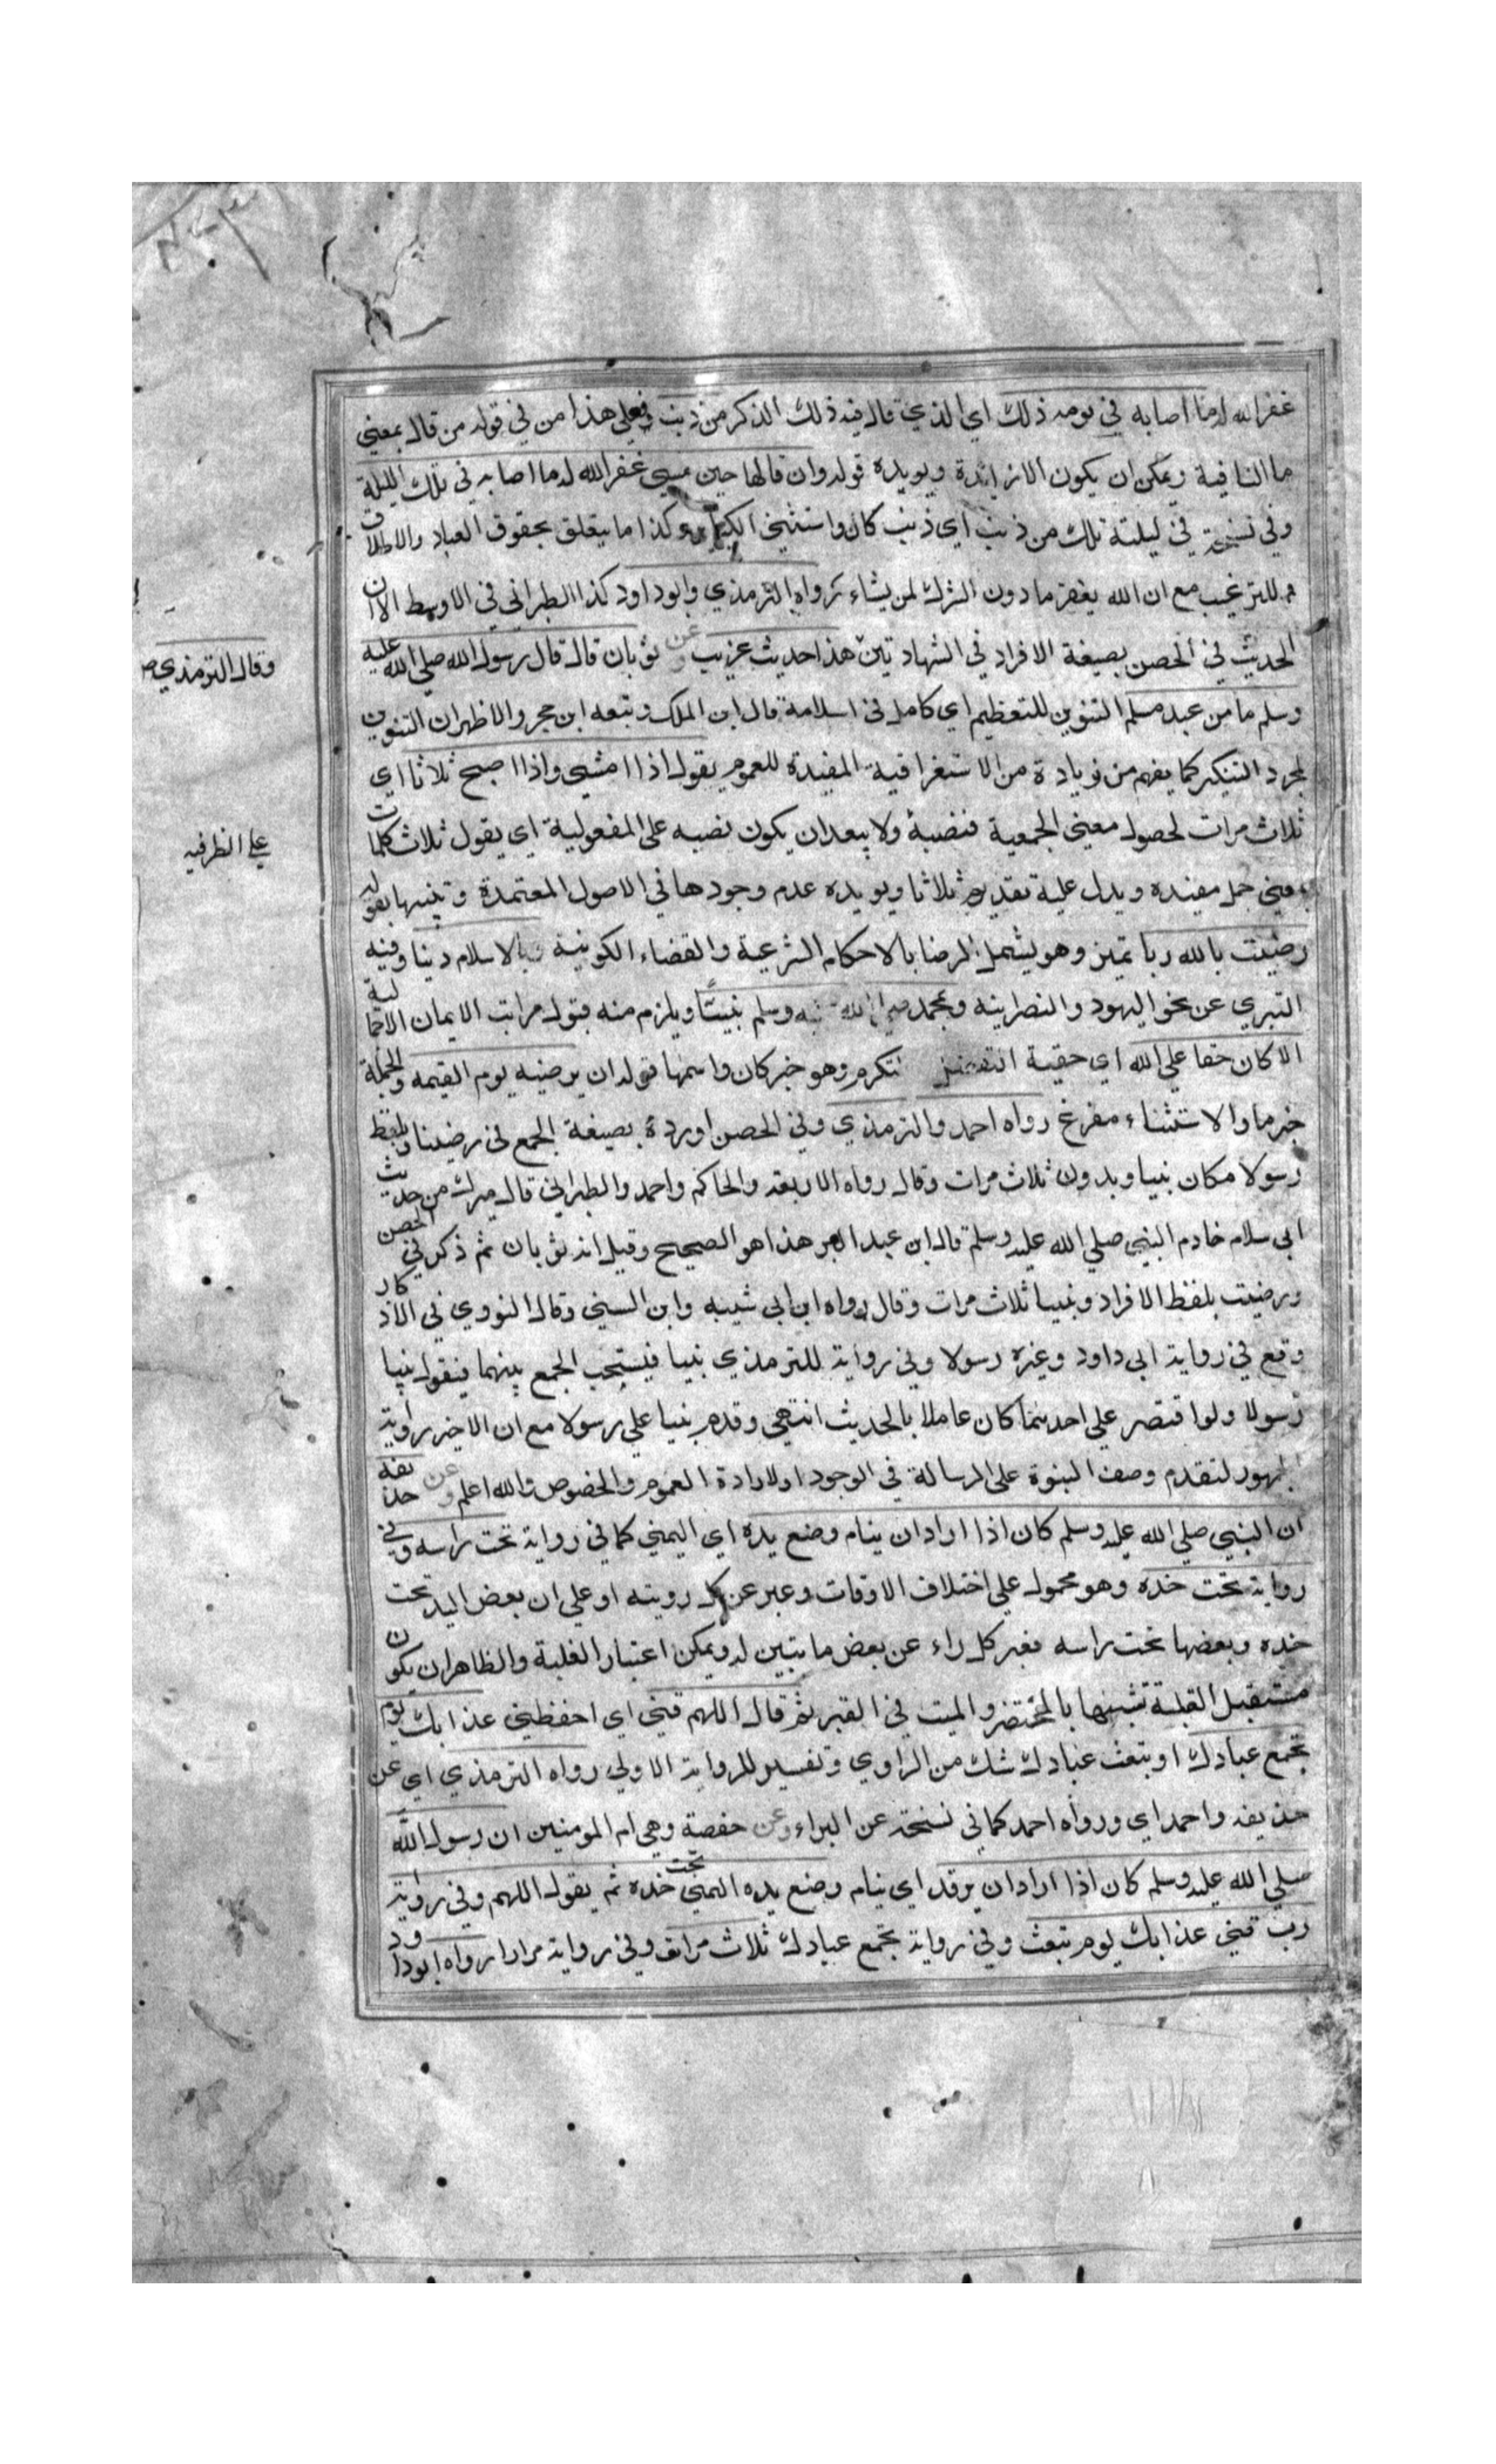 غفر الله له ما اصابه في يومه ذلك اي الذي قال فيه ذلك الذكر من ذنب فعلى هذا من في قوله من قال بمعني
ما النافية ويمكن ان يكون الا زائدة ويويده قوله وان قالها حين يمسي غفر الله له ما اصابه في تلك الليلة
وفي نسخة في ليلته تلك من ذنب اي ذنب كان واستثني الكباير وكذا ما يتعلق بحقوق العباد والاطلاق
للترغيب مع ان الله يغفر ما دون الشرك لمن يشاء رواه الترمذي وابوداود كذا الطبراني في الاوسط الا ان
الحديث في الحصن بصيغة الافراد في الشهادتين هذا حديث غريب وعن ثوبان قال قال رسول الله صلي الله عليه
وقال الترمذي
وسلم ما من عبد مسلم التنوين للتعظيم اي كامل في اسلامه قال ابن الملك وتبعه ابن حجر والاظهر ان التنوين
لمجرد التنكير كما يفهم من زيادة من الاستغراقية المفيدة للعموم يقول اذا امسي واذا اصبح ثلاثا اي
ثلاث مرات لحصول معني الجمعية فنصبه ولا يبعد ان يكون نصبه على المفعولية اي يقول ثلاث كلمات
علي الظرفيه
بمعني جمل مفيدة ويدل عليه تقديم ثلاثا ويويده عدم وجودها في الاصول المعتمدة وتبينها بقوله
رضيت بالله ربا تميز وهو يشمل الرضا بالاحكام الشرعية والقضاء الكونية وبالاسلام دينا وفيه
التبري عن نحو اليهود والنصرانيه وبمحمد صلي الله عليه وسلم نبيا ويلزم منه قبول مراتب الايمان الاجمالية
الا كان حقا علي الله اي حقية التفضل تكرم وهو خبر كان واسمها قوله ان يرضيه يوم القيمه والجملة
خبر ما والاستثناء مفرغ رواه احمد والترمذي وفي الحصن اورده بصيغة الجمع في رضينا وبلفظ
رسولا مكان نبيا وبدون ثلاث مرات وقال رواه الاربعه والحاكم واحمد والطبراني قال ميرك من حديث
ابي سلام خادم النبي صلي الله عليه وسلم قال ابن عبد البر هذا هو الصحيح وقيل انه ثوبان ثم ذكر في الحصن
ورضيت بلفظ الافراد ونبيا ثلاث مرات وقال رواه ابن ابي شيبه وابن السني وقال النووي في الاذكار
وقع في رواية ابي داود وغيره رسولا وفي رواية للترمذي نبيا فيستحب الجمع بينهما فيقول نبيا
رسولا ولو اقتصر علي احدهما كان عاملا بالحديث انتهي وقدم نبيا علي رسولا مع ان الاخير رواية
الجمهور لتقدم وصف النبوة على الرسالة في الوجود او لارادة العموم والخصوص والله اعلم وعن حذيفه
ان النبي صلي الله عليه وسلم كان اذا اراد ان ينام وضع يده اي اليمني كما في رواية تحت راسه وفي
رواية تحت خده وهو محمول علي اختلاف الاوقات وعبر عن كل رويته او علي ان بعض اليد تحت
خده وبعضها تحت راسه فعبر كل راء عن بعض ما يتبين له ويمكن اعتبار الغلبة والظاهر ان يكون
مستقبل القبلة تشبيها بالمحتضر والميت في القبر ثم قال اللهم قني اي احفظني عذابك يوم
تجمع عبادك او تبعث عبادك شك من الراوي وتفسير للرواية الاولي رواه الترمذي اي عن
حذيفه واحمد اي ورواه احمد كما في نسخة عن البراء وعن حفصة وهي ام المومنين ان رسول الله
صلي الله عليه وسلم كان اذا اراد ان يرقد اي ينام وضع يده اليمني تحت خده ثم يقول اللهم وفي رواية
رب قني عذابك يوم تبعث وفي رواية تجمع عبادك ثلاث مرات وفي رواية مرارا رواه ابوداود